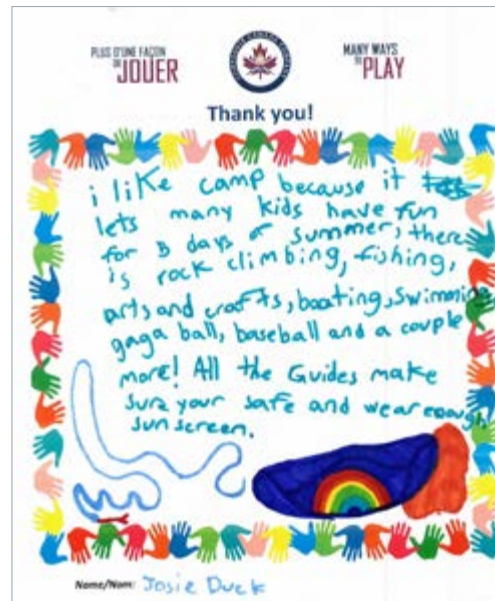 PLUS D'UNE FAÇON
DE JOUER
MANY WAYS
TO PLAY
Thank you!
i like camp because it
lets many kids have fun
for days of summer, there
is rock climbing, fishing,
arts and crafts, boating, swimming
gaga ball, baseball and a couple
more! All the Guides make
sure your safe and wear enough
sunscreen.
Name/Nom: Josie Duck